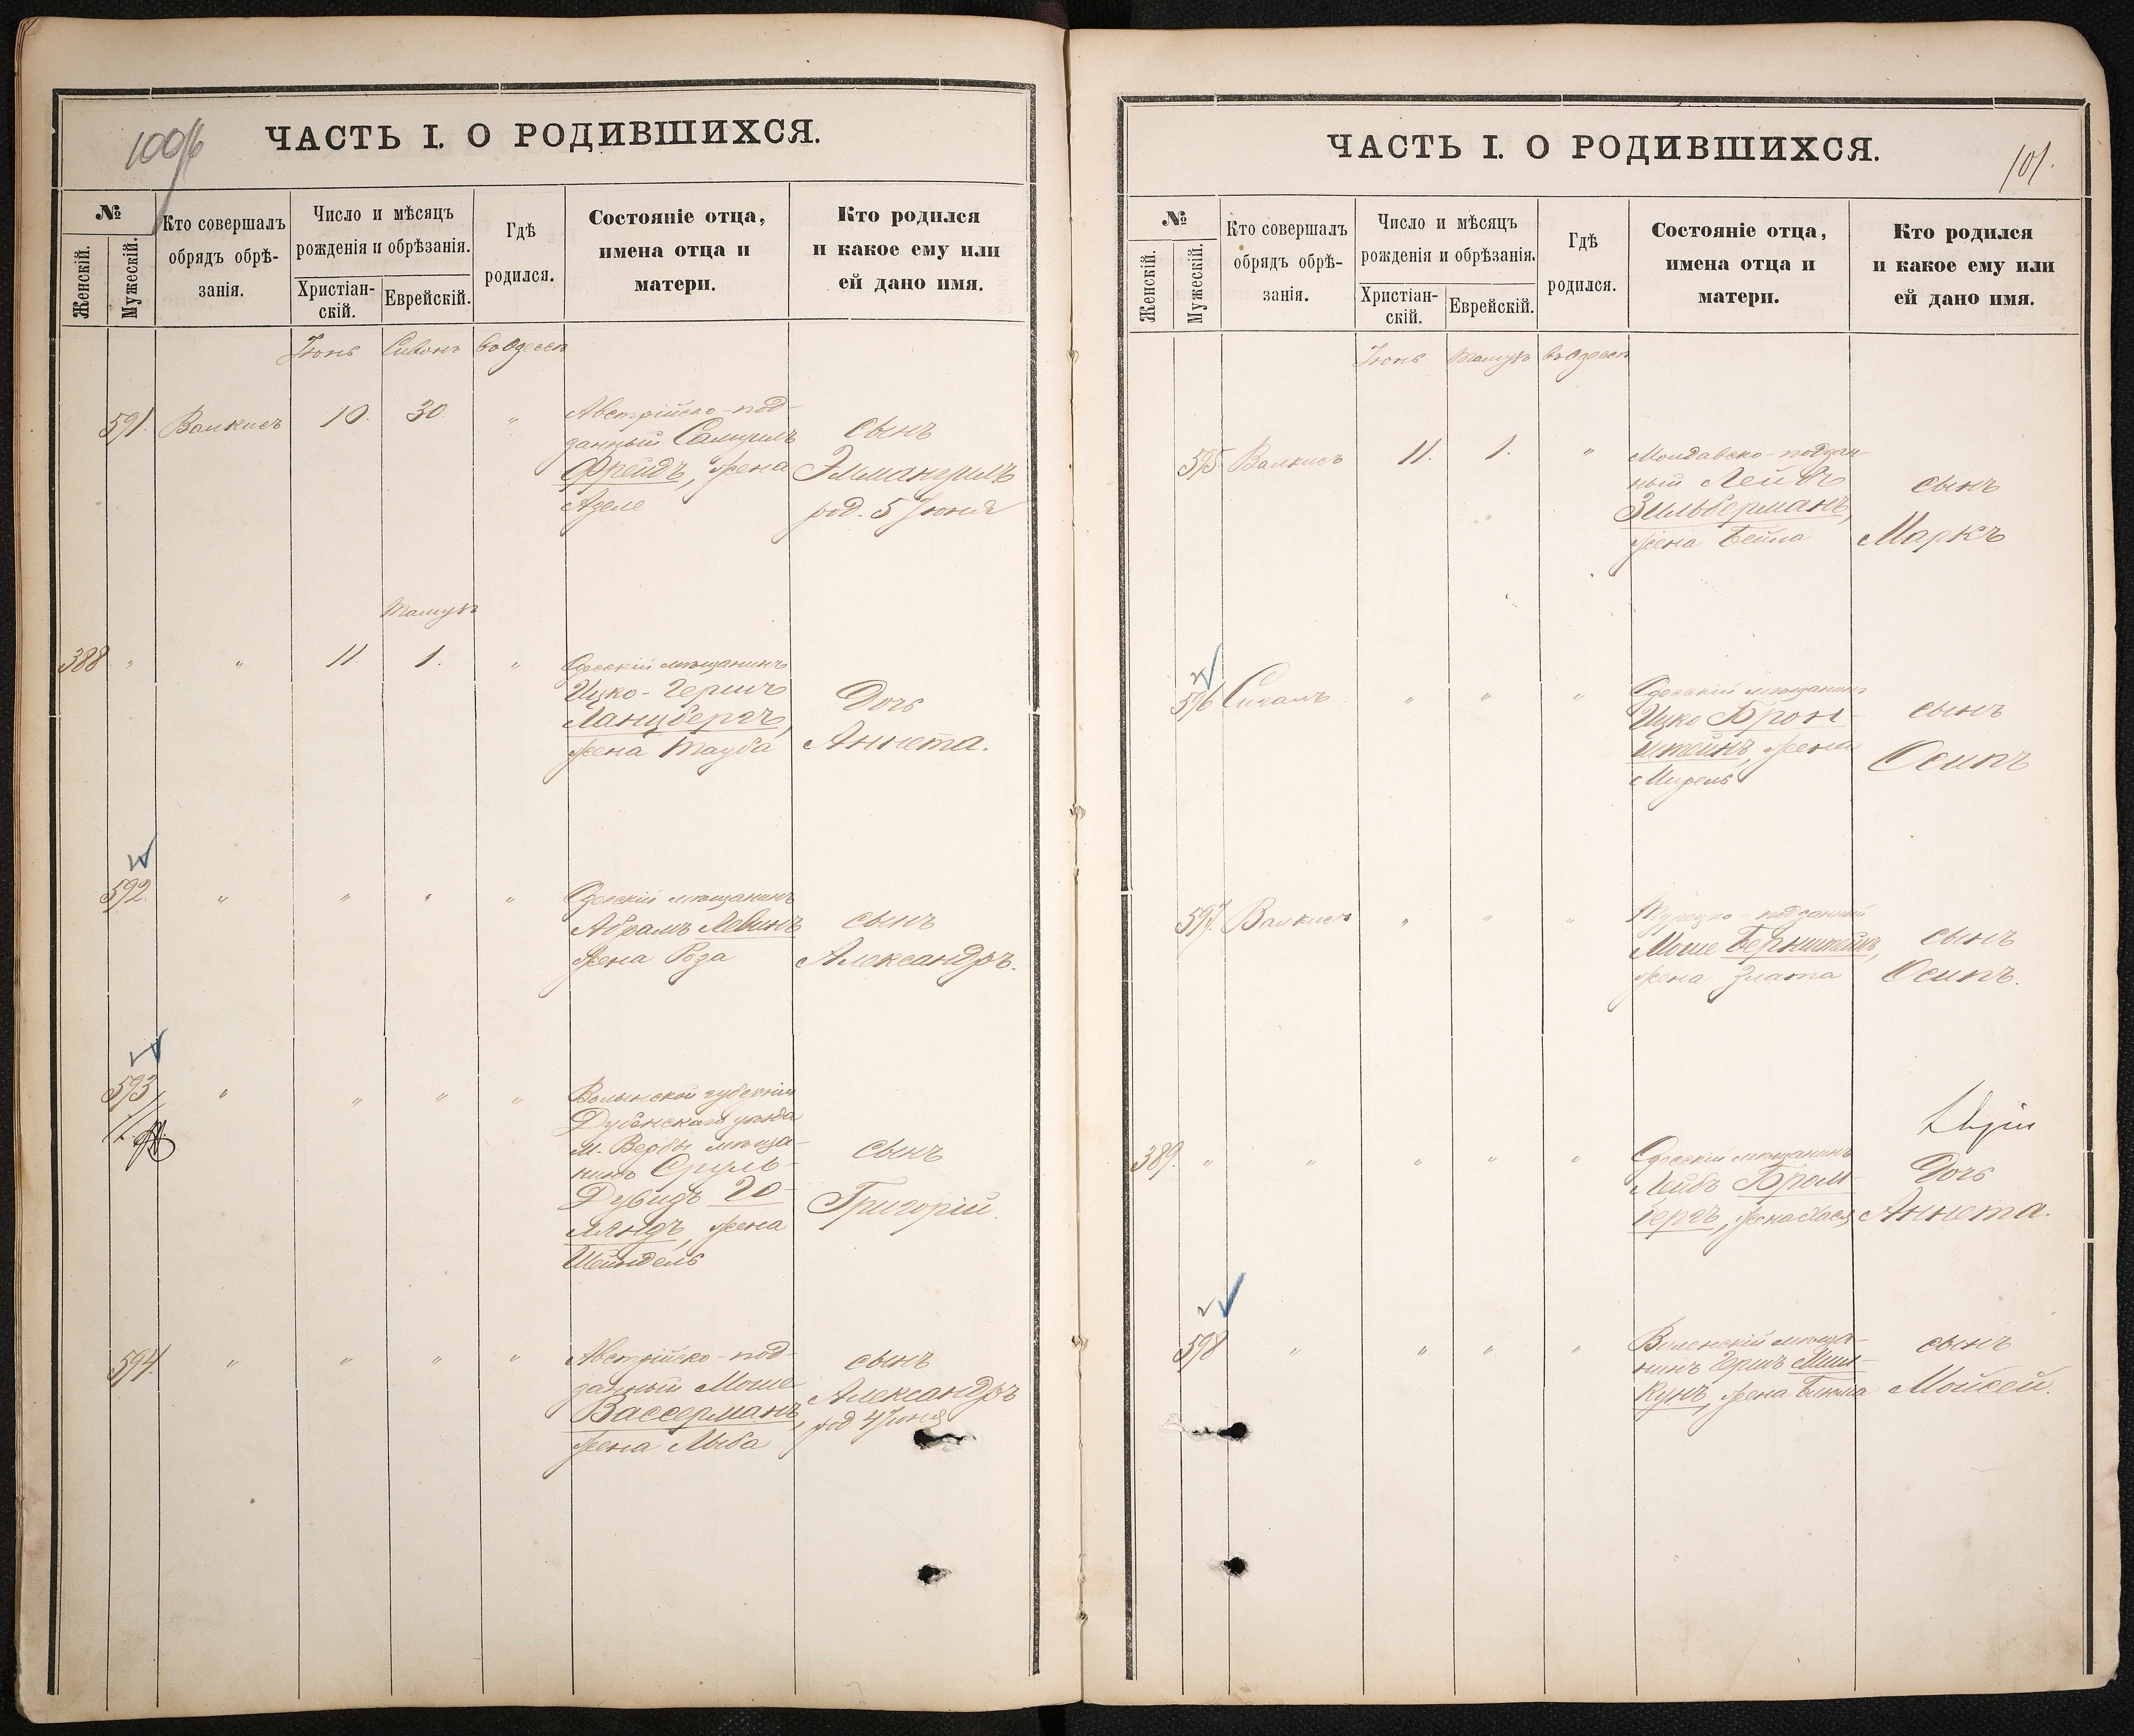 100
ЧАСТЬ I. О РОДИВШИХСЯ.
№
Женскій.
Мужескій.
Кто совершалъ
обрядъ обрѣ-
занія.
Число и мѣсяцъ
рожденія и обрѣзанія.
Христіан-
скій.
Еврейскій.
Гдѣ
родился.
Состояніе отца,
имена отца и
матери.
Кто родился
и какое ему или
ей дано имя.
Іюнь Сивонъ въ Одессѣ
591. Валкисъ 10. 30 "
Австрійско-под-
данный Самуилъ
Фрейдъ, жена
Аделе
сынъ
Эммануилъ
род. 5 Іюня
Тамузъ
388 " " 11 1. "
Одесскій мѣщанинъ
Ицко-Гершъ
Ланцбергъ,
жена Тауба
Дочь
Аннета.
592. " " " "
Одесскій мѣщанинъ
Абрамъ Левинъ
жена Роза
сынъ
Александръ.
593 " " " "
Волынской губерніи
Дубенскаго уѣзда
м. Вербы мѣща-
нинъ Сруль-
Дувидъ Го-
ляндъ, жена
Шейндель
сынъ
Григорій.
594. " " " "
Австрійско-под-
данный Моше
Вассерманъ,
жена Люба
сынъ
Александръ
род 4 Іюня
ЧАСТЬ I. О РОДИВШИХСЯ.
101.
№
Женскій.
Мужескій.
Кто совершалъ
обрядъ обрѣ-
занія.
Число и мѣсяцъ
рожденія и обрѣзанія.
Христіан-
скій.
Еврейскій.
Гдѣ
родился.
Состояніе отца,
имена отца и
матери.
Кто родился
и какое ему или
ей дано имя.
Іюнь Тамузъ въ Одессѣ
595 Валкисъ 11. 1. "
Молдавско-поддан-
ный Лейбъ
Зильберманъ,
жена Бейла
сынъ
Маркъ
596 " " "
Одесскій мѣщанинъ
Ицко Брон-
штейнъ, жена
Мирель
сынъ
Осипъ
597. Валкисъ " " "
Турецко-подданный
Моше Бернштейнъ,
жена Злата
сынъ
Осипъ.
389. " " " " "
Одесскій мѣщанинъ
Лейбъ Бром-
бергъ, жена Хася
Дочь
Аннета.
598 " " " "
Виленскій мѣща-
нинъ Гершъ Миш-
кунъ, жена
сынъ
Мойсей.